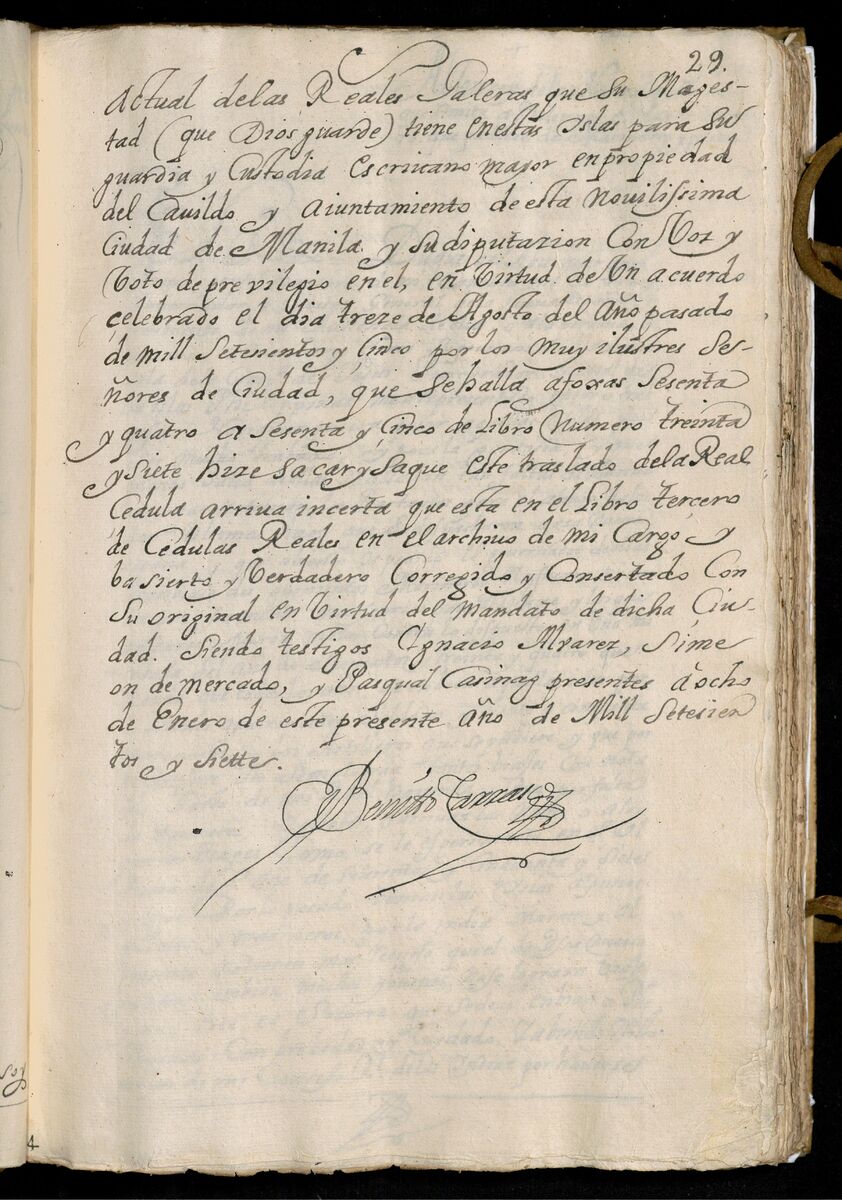 29.
Actual delas Reales Galeras que Su Mages-
tad (que Dios guarde) tiene enestas Yslas para Su
guardia y Custodia escriuano mayor enpropiedad
del Cauildo y Aiuntamiento de esta Nouilissima
Ciudad de Manila y Sudiputazion Con Voz y
Voto deprevilegio en el, en Virtud de Vn acuerdo
celebrado el dia treze de Agosto del Año pasado
de mill Setesientos y Cinco por los muy ilustres Se-
ñores de Ciudad, que Sehalla afoxas Sesenta
y quatro a Sesenta y Cinco de Libro Numero treinta
y Siete hize Sacar y Saque este traslado dela Real
Cedula arriua incerta que esta en el Libro tercero
de Cedulas Reales en el archiuo de mi Cargo, y
ba sierto y Verdadero Corregido y Consertado Con
Su original en Virtud del mandato de dicha Ciu-
dad. Siendo testigos Ygnacio Alvarez, Sime
on de mercado, y Pasqual Casinag presentes á ocho
de Enero de este presente Año de Mill Setesien
tos y Siette.
Benitto Carrasco
4